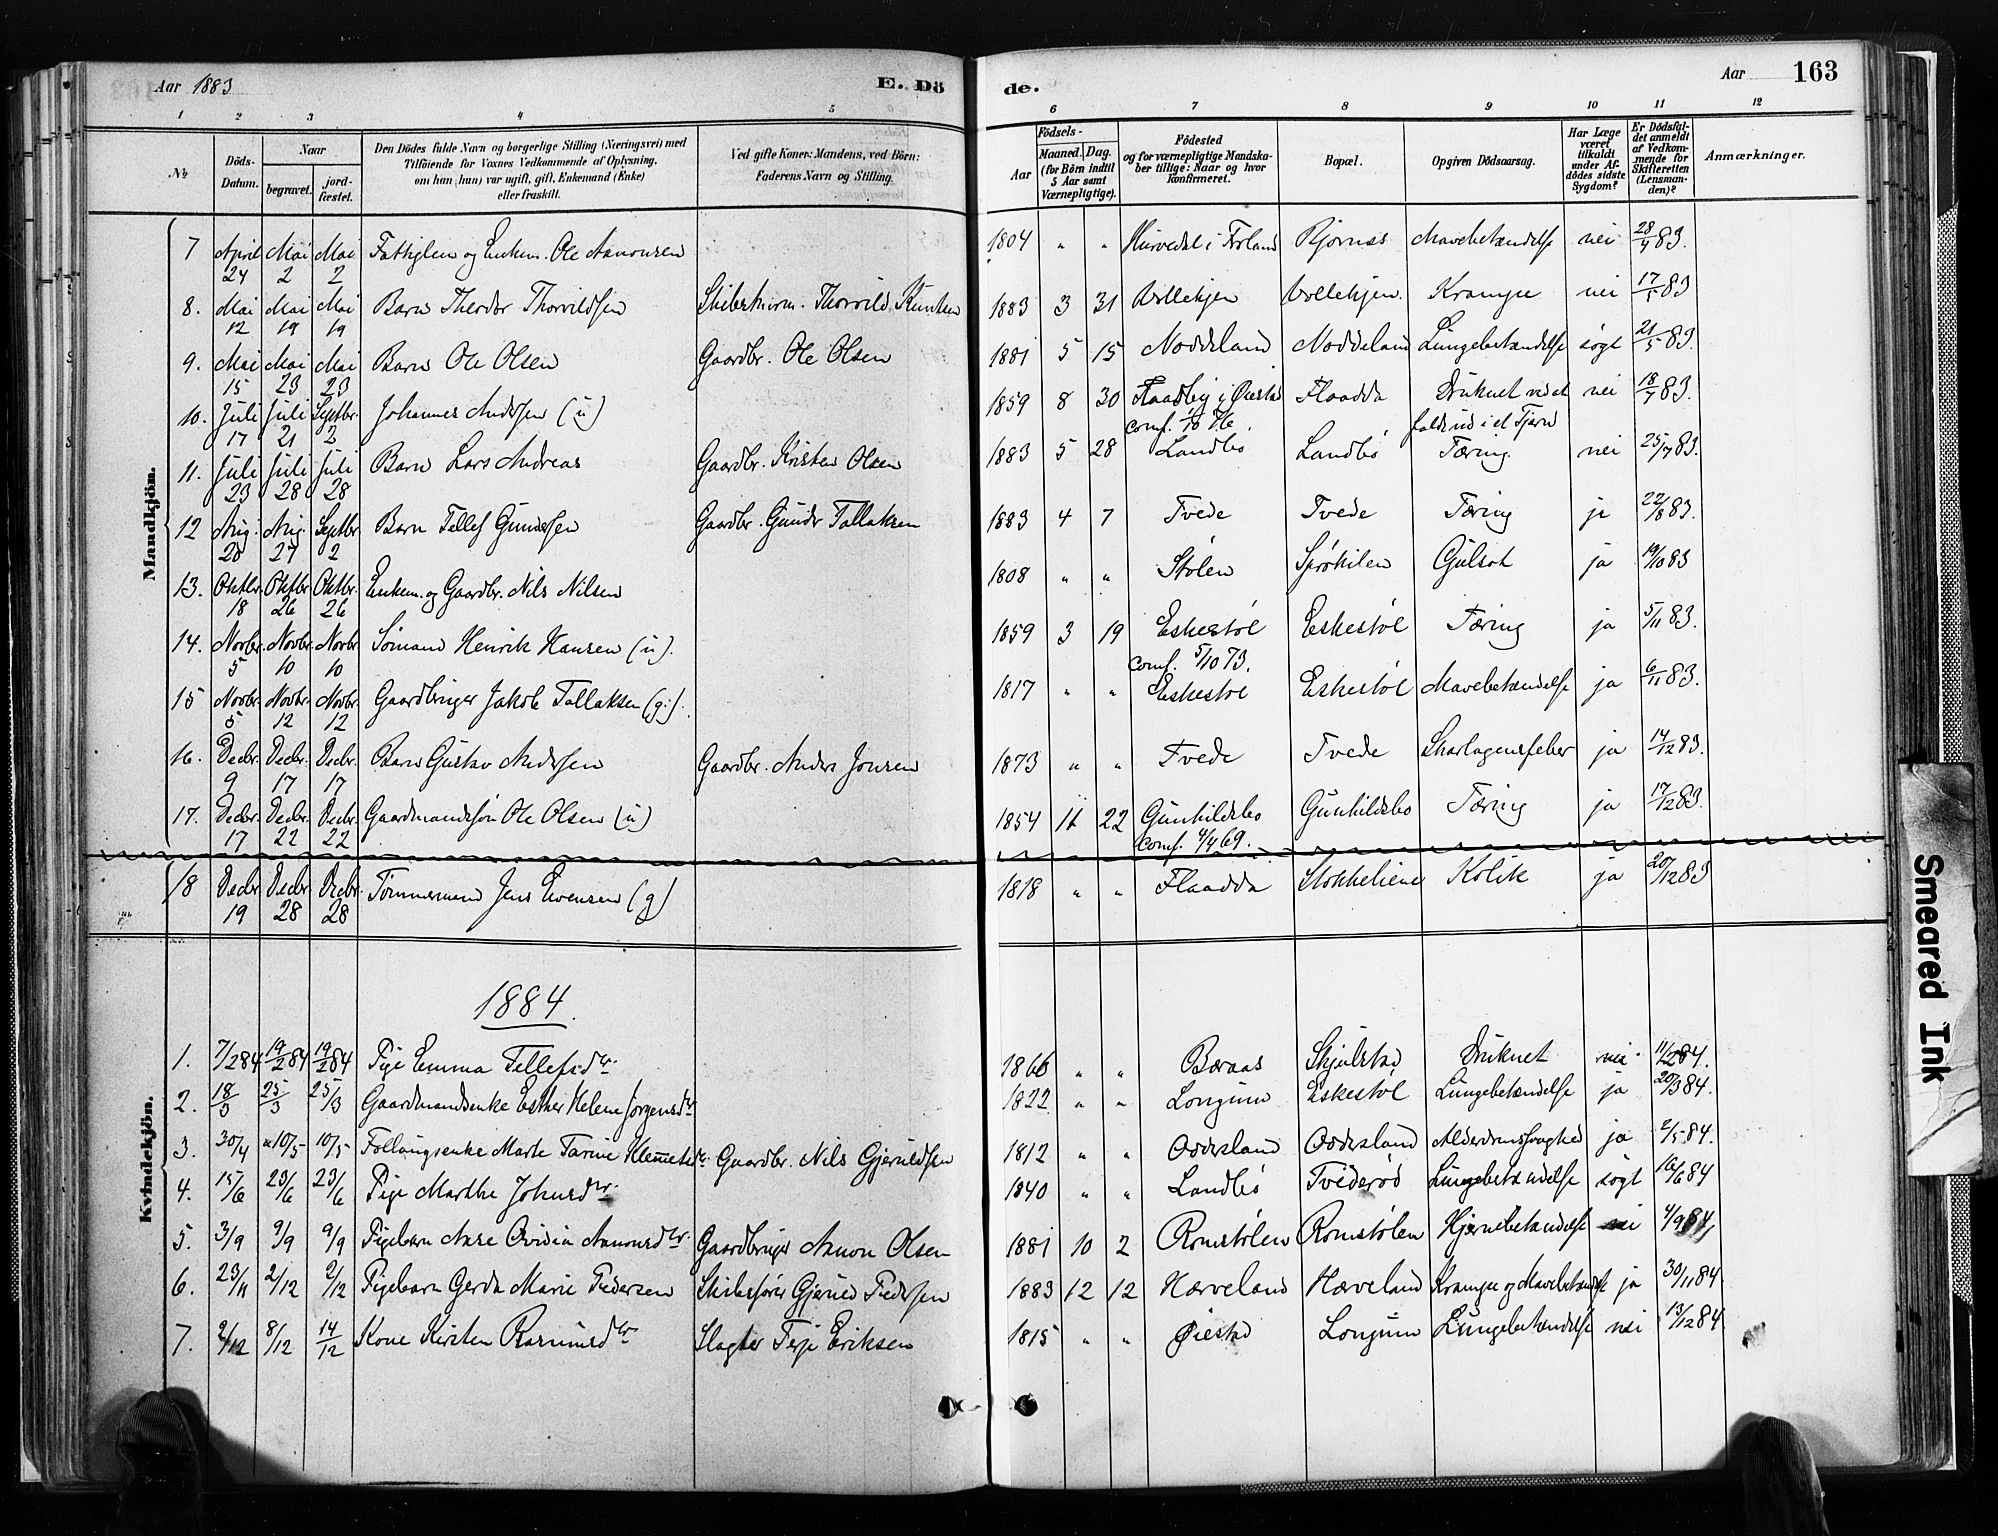 Aar 1883
E. Dö
de.
Aar
163
1 2 3 4 5 6 7 8 9 10 11 12
№
Döds-Datum.
Naar
begravet.
jordfæstet.
Den Dödes fulde Navn og borgerlige Stilling (Næringsvei) med
Tilföiende for Voxnes Vedkommende af Oplysning,
om han (hun) var ugift, gift, Enkemand (Enke)
eller fraskilt.
Ved gifte Koner: Mandens, ved Börn:
Faderens Navn og Stilling.
Födsels-
Aar
Maaned. Dag.
(for Börn indtil 5 Aar samt Værnepligtige).
Födested
og for værnepligtige Mandskaber tillige: Naar og hvor konfirmeret.
Bopæl.
Opgiven Dödsaarsag.
Har Læge været tilkaldt under Afdödes sidste Sygdom?
Er Dödsfaldet anmeldt af Vedkommende for Skifteretten (Lensmanden)?
Anmærkninger.
Mandkjön.
7 April 24 Mai 2 Mai 2 Fattiglem og Enkem. Ole Aanonsen 1804 " " Bjørnes Mavebetændelse nei 28/4 83.
8. Mai 12 Mai 19 Mai 19 Barn Theodor Thorvildsen Thorvild Knutsen 1883 3 31 Vollekjen Vollekjen. Krampe nei 17/5 83
9. Mai 15 Mai 23 Mai 23 Barn Ole Olsen Gaardbr. Ole Olsen 1881 5 15 Noddeland Noddeland Lungebetændelse søgt 21/5 83.
10. Juli 17 Juli 21 Septbr. 2 Johannes Andersen (u) 1859 8 30 i Øiestad Flaadda Druknet ved at nei 18/7 83.
falde ud i et Tjern
11. Juli 23 Juli 28 Juli 28 Barn Lars Andreas Gaardbr. Kristen Olsen 1883 5 28 Landbø Landbø Tæring. nei 25/7 83.
12 Aug. 20 Aug. 27 Septbr. 2 Barn Tellef Gundersen Gaardbr. Gunder Tallaksen 1883 4 7 Tvede Tvede Tæring ja 22/8 83.
13. Oktbr. 18 Oktbr 26 Oktbr. 26 Enkem. og Gaardbr. Nils Nilsen 1808 " " Stølen Sprøkilen Gulsot ja 19/10 83
14. Novbr. 5 Novbr. 10 Novbr. 10 Sømand Henrik Hansen (u). 1859 3 19 Eskestøl Eskestøl Tæring ja 5/11 83.
conf. 5/10 73.
15 Novbr. 5 Novbr. 12 Novbr. 12 Gaardbruger Jakob Tallaksen (g.). 1817 " " Eskestøl Eskestøl Mavebetændelse ja 6/11 83.
16. Decbr. 9 Decbr. 17 Decbr. 17 Barn Gustav Andersen Gaardbr. Anders Jensen 1873 " " Tvede Tvede Skarlagensfeber ja 14/12 83.
17. Decbr. 17 Decbr. 22 Decbr. 22 Gaardmandssøn Ole Olsen (u) 1854 11 22 Gunhildsbo Gunhildsbo Tæring ja 17/12 83.
conf. 4/4 69.
18 Decbr 19 Decbr 28 Decbr 28 Tømmermand Jens Evensen (g) 1818 " " Flaadda Stokkeliene Kolik ja 20/12 83
1884.
Kvindekjön.
1. 7/2 84 19/2 84 19/2 84 Pige Emma Tellefsdtr. 1866 " " Baraas Skjulstad Druknet nei 11/2 84.
2. 18/3 25/3 25/3 Gaardmandsenke Esther Helene Jørgensdtr 1822 " " Longum Eskestøl Lungebetændelse ja 20/3 84.
3. 30/4 10/5 10/5 Follaugsenke Marte Tarine Klemetsdtr. Gaardbr. Nils Gjeruldsen 1812 " " Oddersland Oddersland Alderdomssvaghed ja 2/5 84.
4. 15/6 23/6 23/6 Pige Marthe Johnsdtr. 1840 " " Landbø Tvederød Lungebetændelse søgt 16/6 84
5. 3/9 9/9 9/9 Pigebarn Aase Ovidia Aanonsdtr. Gaardbruger Aanon Olsen 1881 10 2 Romstølen Romstølen Hjernebetændelse nei 4/9 84
6. 23/11 2/12 2/12 Pigebarn Gerda Marie Pedersen Skibsfører Gjeruld Pedersen 1883 12 12 Hæveland Hæveland Krampe og Mavebetændelse ja 30/11 84.
7. 2/12 8/12 14/12 Kone Kirsten Rasmusdtr Slagter Terje Eriksen 1815 " " Øiestad Longum Lungebetændelse nei 13/12 84
Smeared Ink